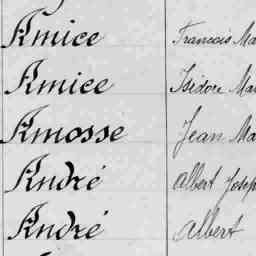 Amice François Ma
Amice Isidore Mar
Amosse Jean Ma
André Albert Josep
André Albert